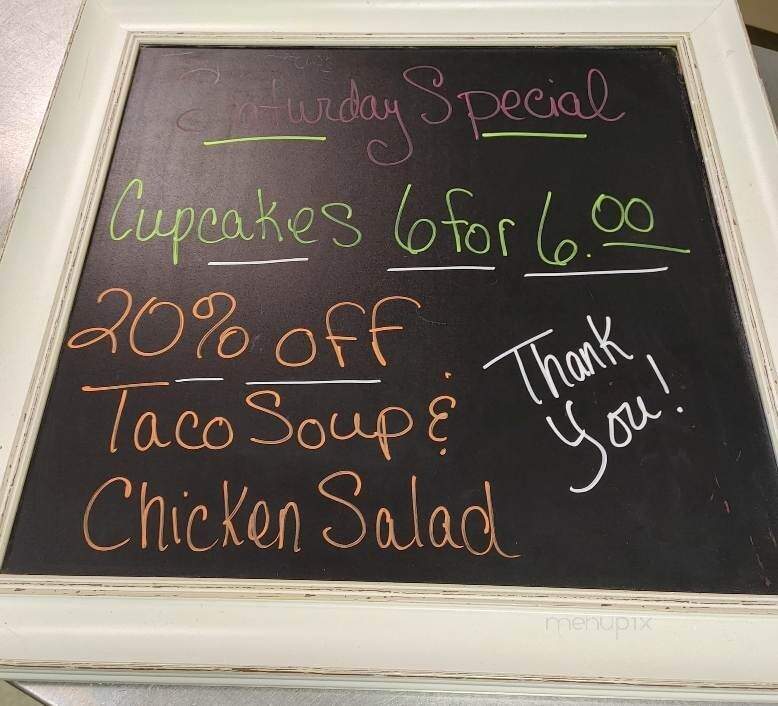 Saturday Special
Cupcakes 6 for 6.00
20% off
Taco Soup &
Chicken Salad
Thank
You!
menupix